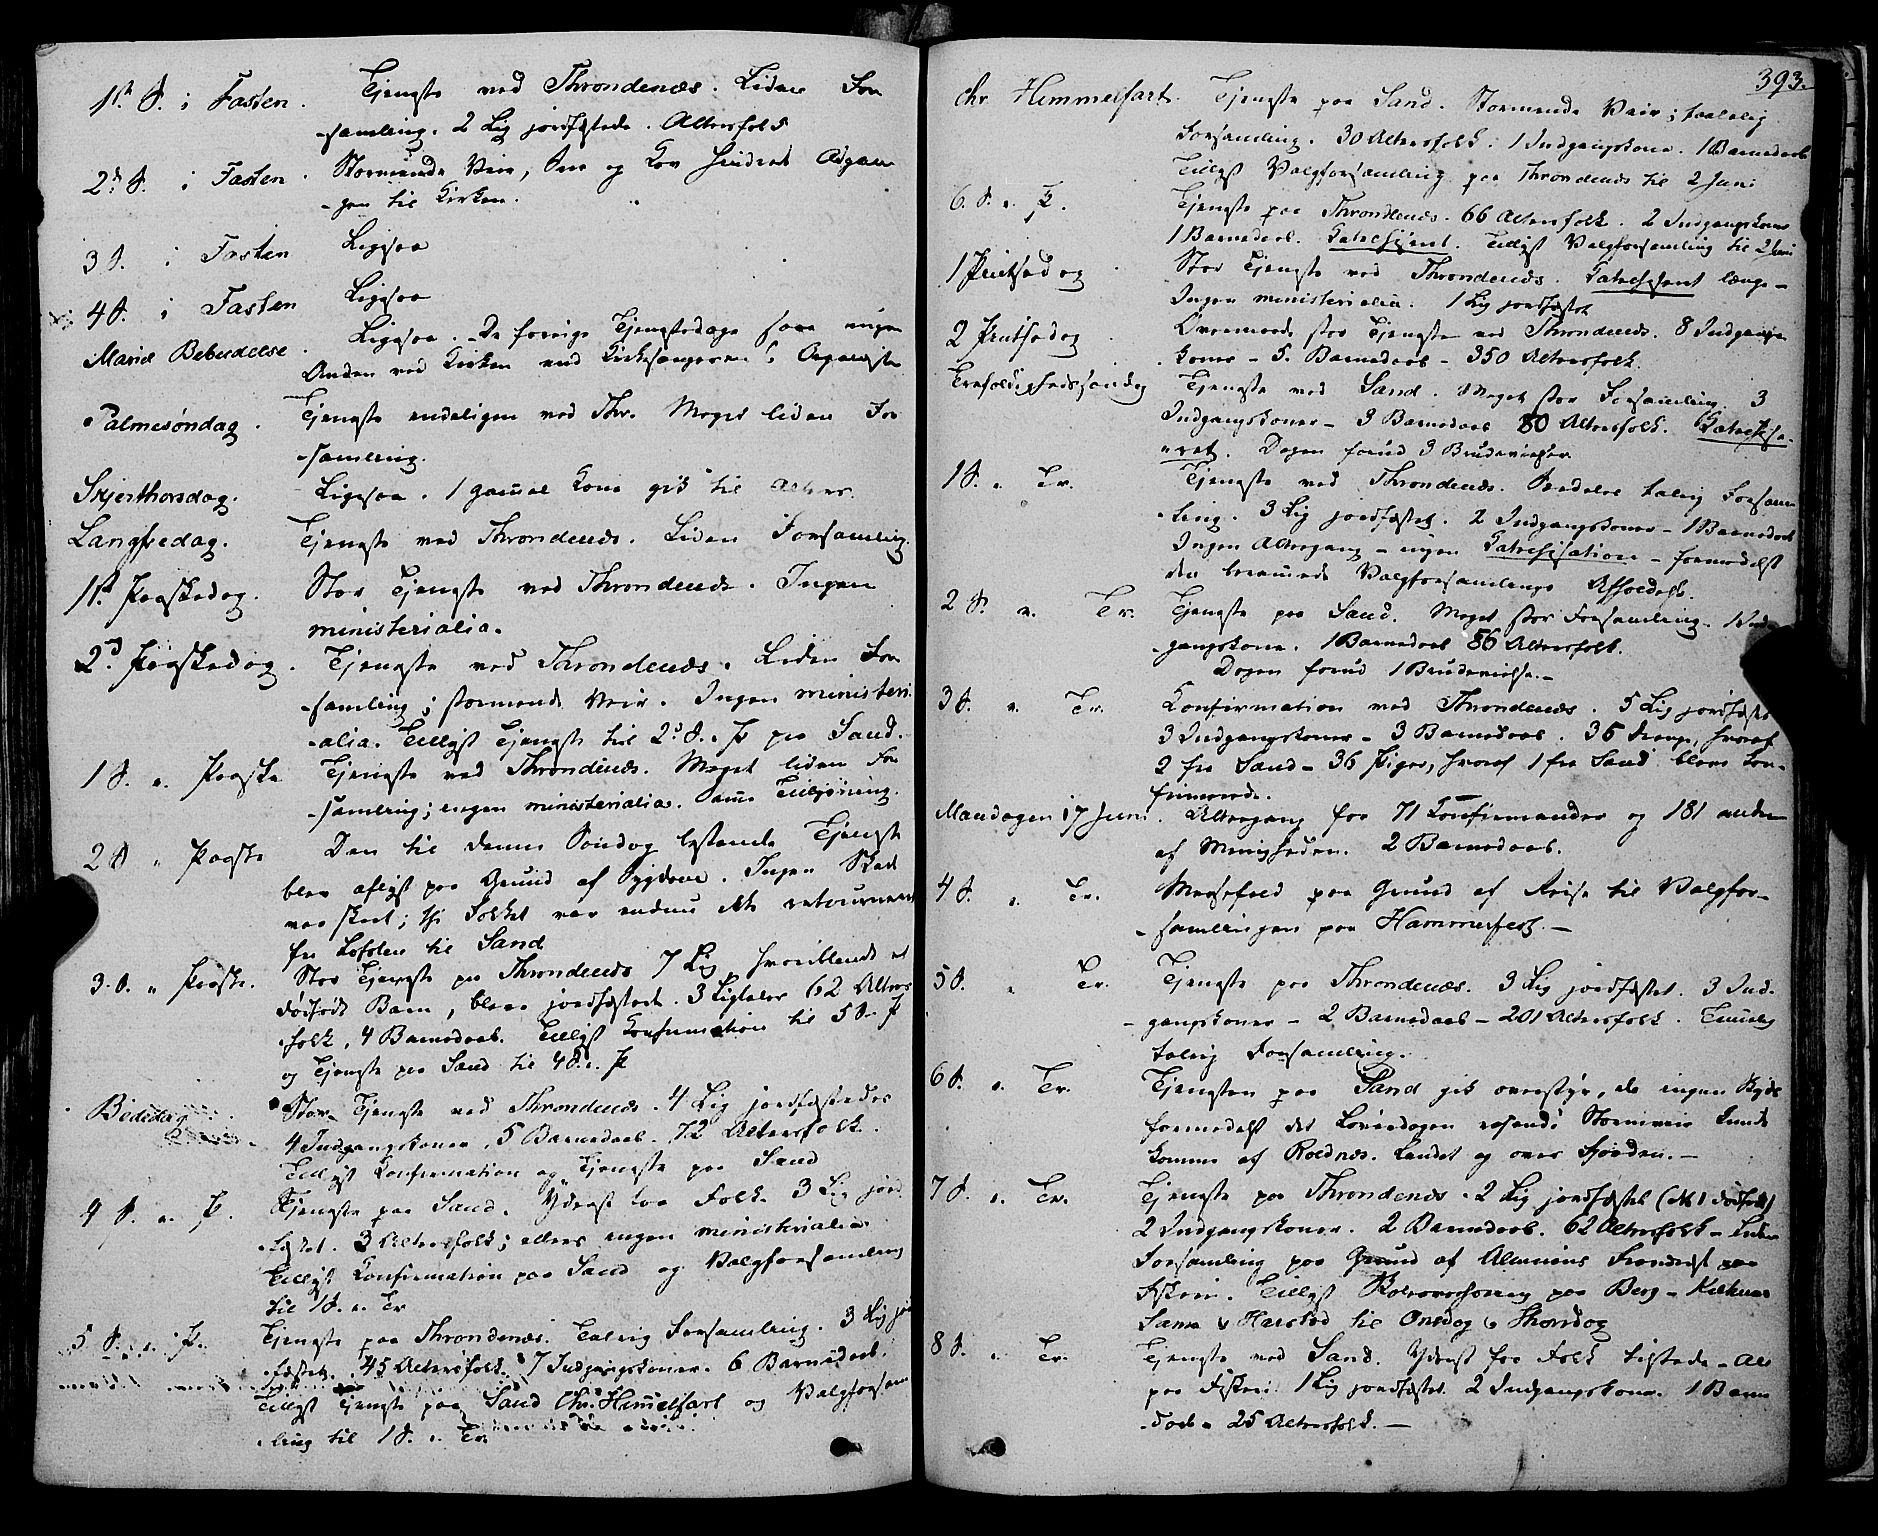 1ste S. i Fasten. Tjeneste ved Throndenæs. Liden For
-samling. 2 Lig jordfæstede. Altersfolk
2den S. i Fasten. Stormende Veir, Snee og Kov hindret Adgan
-gen til Kirken.
3 S. i Fasten Ligesaa
4 S. i Fasten Ligesaa
Mariæ Bebudelse. Ligesaa. De forrige Tjenestedage saae ingen
Anden ved Kirken end Kirkesangeren & Organisten
Palmesøndag. Tjeneste endeligen ved Thr. Meget liden For
-samling.
Skjerthorsdag. Ligesaa. 1 gammel Kone gik til Alters.
Langfredag. Tjeneste ved Throndenæs. Liden Forsamling.
1ste Paaskedag. Stor Tjeneste ved Throndenæs. Ingen
ministerialia.
2den Paaskedag. Tjeneste ved Throndenæs. Liden For
-samling; stormende Veir. Ingen ministeri
-alia. Tillyst Tjeneste til 2d S. e. P paa Sand.
1 S. e. Paaske Tjeneste ved Throndenæs. Meget liden For
-samling; ingen ministerialia. Samme Tillysning.
2 S " Paaske Den til denne Søndag bestemte Tjeneste
blev aflyst paa Grund af Sygdom. Ingen Skade
var skeet; thi Folket var endnu ikke retourneret
fra Lofoten til Sand
3. S. " Paaske. Stor Tjeneste paa Throndenæs 7 Lig, hvoriblandt et
dødfødt Barn, bleve jordfæstet. 3 Ligtaler 62 Alters
-folk, 4 Barnedaab. Tillyst Confirmation til 5 S. e. P
og Tjeneste paa Sand til 4 S. e. P
Bededag Stor Tjeneste ved Throndenæs. 4 Lig jordfæstedes
4 Indgangskoner, 5 Barnedaab. 72 Altersfolk.
Tillyst Confirmation og Tjeneste paa Sand
4 S. e. P. Tjeneste paa Sand. Yderst faa Folk. 3 Lig jord
-fæstet. 3 Altersfolk; ellers ingen ministerialia
Tillyst Confirmation paa Sand og Valgforsamling
til 1 S. e. Tr
5 S. e. P. Tjeneste paa Throndenæs. Talrig Forsamling. 3 Lig jord
-fæstet. 45 Altersfolk. 7 Indgangskoner. 6 Barnedaab.
Tillyst Tjeneste paa Sand Chr. Himmelfart og Valgforsam
-ling til 1 S. e. Tr.
393.
Chr. Himmelfart. Tjeneste paa Sand. Stormende Veir; taalelig
Forsamling. 30 Altersfolk. 1 Indgangskone. 1 Barnedaab
Tillyst Valgforsamling paa Throndenæs til 2 Juni
6. S. e. P. Tjeneste paa Throndenæs. 66 Altersfolk. 2 Indgangskoner
1 Barnedaab. Catechiseret. Tillyst Valgforsamling til 2 Juni
1 Pintsedag Stor Tjeneste ved Throndenæs. Catechiseret længe -
Ingen ministerialia. 1 Lig jordfæstet
2 Pintsedag Overmaade stor Tjeneste ved Throndenæs. 8 Indgangs
koner - 5. Barnedaab - 350 Altersfolk.
Trefoldighedssøndag Tjeneste ved Sand. Meget stor Forsamling. 3
Indgangskoner - 3 Barnedaab 80 Altersfolk. Catechise-
-ret. Dagen forud 3 Brudevielser
1 S. e. Tr. Tjeneste ved Throndenæs. Særdeles talrig Forsam
-ling. 3 Lig jordfæstet. 2 Indgangskoner - 1 Barnedaab
Ingen Altergang - ingen Catechisation - formedelst
den berammede Valgforsamlings Afholdelse.
2 S. e. Tr. Tjeneste paa Sand. Meget stor Forsamling. 1 Ind
-gangskone. 1 Barnedaab 86 Altersfolk.
Dagen forud 1 Brudevielse. -
3 S. e. Tr. Confirmation ved Throndenæs. 5 Lig jordfæstet
3 Indgangskoner - 3 Barnedaab. 35 Drenge, hvoraf
2 fra Sand - 36 Piger, hvoraf 1 fra Sand bleve Con-
firmerede.
Mandagen 17 Juni. Altergang for 71 Confirmander og 181 andre
af Menigheden. 2 Barnedaab.
4 S. e. Tr. Messefald paa Grund af Reise til Valgfor-
-samlingen paa Hammerfest. -
5 S. " Tr. Tjeneste paa Throndenæs. 3 Lig jordfæstet. 3 Ind-
-gangskoner - 2 Barnedaab - 201 Altersfolk. Temmelig
talrig Forsamling.
6 S. e. Tr. Tjenesten paa Sand gik overstyr, da ingen Skyds
formedelst det Løverdagen rasende Stormveir kunde
komme af Roldnæs-Landet og over Fjorden. -
7 S. e. Tr. Tjeneste paa Throndenæs. 2 Lig jordfæstet (det 1 dødfødt)
2 Indgangskoner. 2 Barnedaab. 62 Altersfolk - Liden
Forsamling paa Grund af Almuens Fraværelse paa
Fiskeri. Tillyst paa Berg - Kilhus
Sama & Harstad til Onsdag & Thorsdag
8 S. e. Tr. Tjeneste ved Sand. Yderst faa Folk tilstede - Alle
paa Fiskeri. 1 Lig jordfæstet. 2 Indgangskoner. 1 Barne
-daab - 25 Altersfolk. -